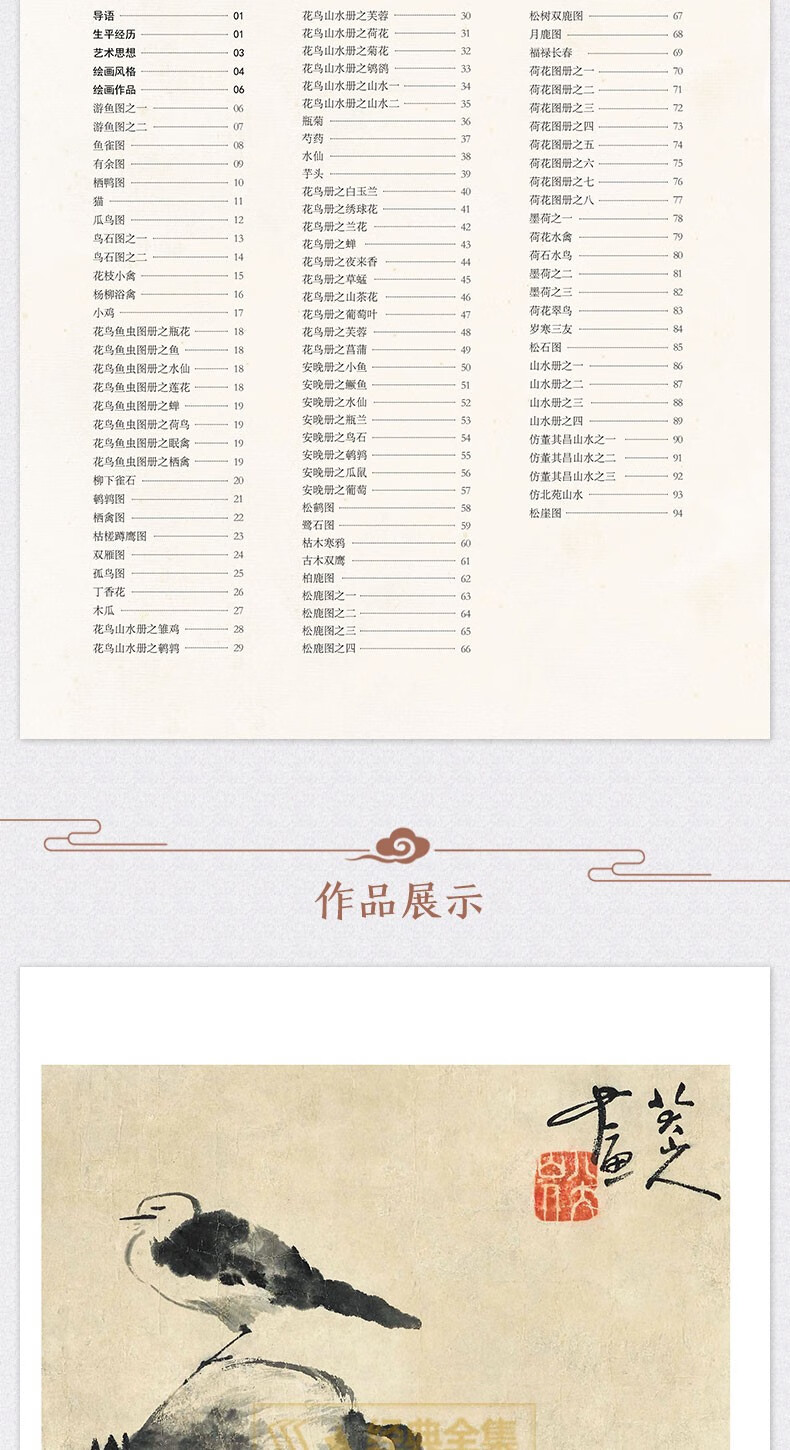 导语 01
生平经历 01
艺术思想 03
绘画风格 04
绘画作品 06
游鱼图之一 06
游鱼图之二 07
鱼雀图 08
有余图 09
栖鸭图 10
猫 11
瓜鸟图 12
鸟石图之一 13
鸟石图之二 14
花枝小禽 15
杨柳浴禽 16
小鸡 17
花鸟鱼虫图册之瓶花 18
花鸟鱼虫图册之鱼 18
花鸟鱼虫图册之水仙 18
花鸟鱼虫图册之莲花 18
花鸟鱼虫图册之蝉 19
花鸟鱼虫图册之荷鸟 19
花鸟鱼虫图册之眠禽 19
花鸟鱼虫图册之栖禽 19
柳下雀石 20
鹌鹑图 21
栖禽图 22
枯槎蹲鹰图 23
双雁图 24
孤鸟图 25
丁香花 26
木瓜 27
花鸟山水册之雏鸡 28
花鸟山水册之鹌鹑 29
花鸟山水册之芙蓉 30
花鸟山水册之荷花 31
花鸟山水册之菊花 32
花鸟山水册之鸲鹆 33
花鸟山水册之山水一 34
花鸟山水册之山水二 35
瓶菊 36
芍药 37
水仙 38
芋头 39
花鸟册之白玉兰 40
花鸟册之绣球花 41
花鸟册之兰花 42
花鸟册之蝉 43
花鸟册之夜来香 44
花鸟册之草蜢 45
花鸟册之山茶花 46
花鸟册之葡萄叶 47
花鸟册之芙蓉 48
花鸟册之菖蒲 49
安晚册之小鱼 50
安晚册之鳜鱼 51
安晚册之水仙 52
安晚册之瓶兰 53
安晚册之鸟石 54
安晚册之鹌鹑 55
安晚册之瓜鼠 56
安晚册之葡萄 57
松鹤图 58
鹭石图 59
枯木寒鸦 60
古木双鹰 61
柏鹿图 62
松鹿图之一 63
松鹿图之二 64
松鹿图之三 65
松鹿图之四 66
松树双鹿图 67
月鹿图 68
福禄长春 69
荷花图册之一 70
荷花图册之二 71
荷花图册之三 72
荷花图册之四 73
荷花图册之五 74
荷花图册之六 75
荷花图册之七 76
荷花图册之八 77
墨荷之一 78
荷花水禽 79
荷石水鸟 80
墨荷之二 81
墨荷之三 82
荷花翠鸟 83
岁寒三友 84
松石图 85
山水册之一 86
山水册之二 87
山水册之三 88
山水册之四 89
仿董其昌山水之一 90
仿董其昌山水之二 91
仿董其昌山水之三 92
仿北苑山水 93
松崖图 94
作品展示
八大山人
画
典全集